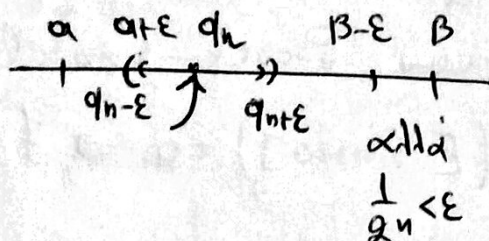 a a+ε qn β-ε β
qn-ε qn+ε
1/2n <ε